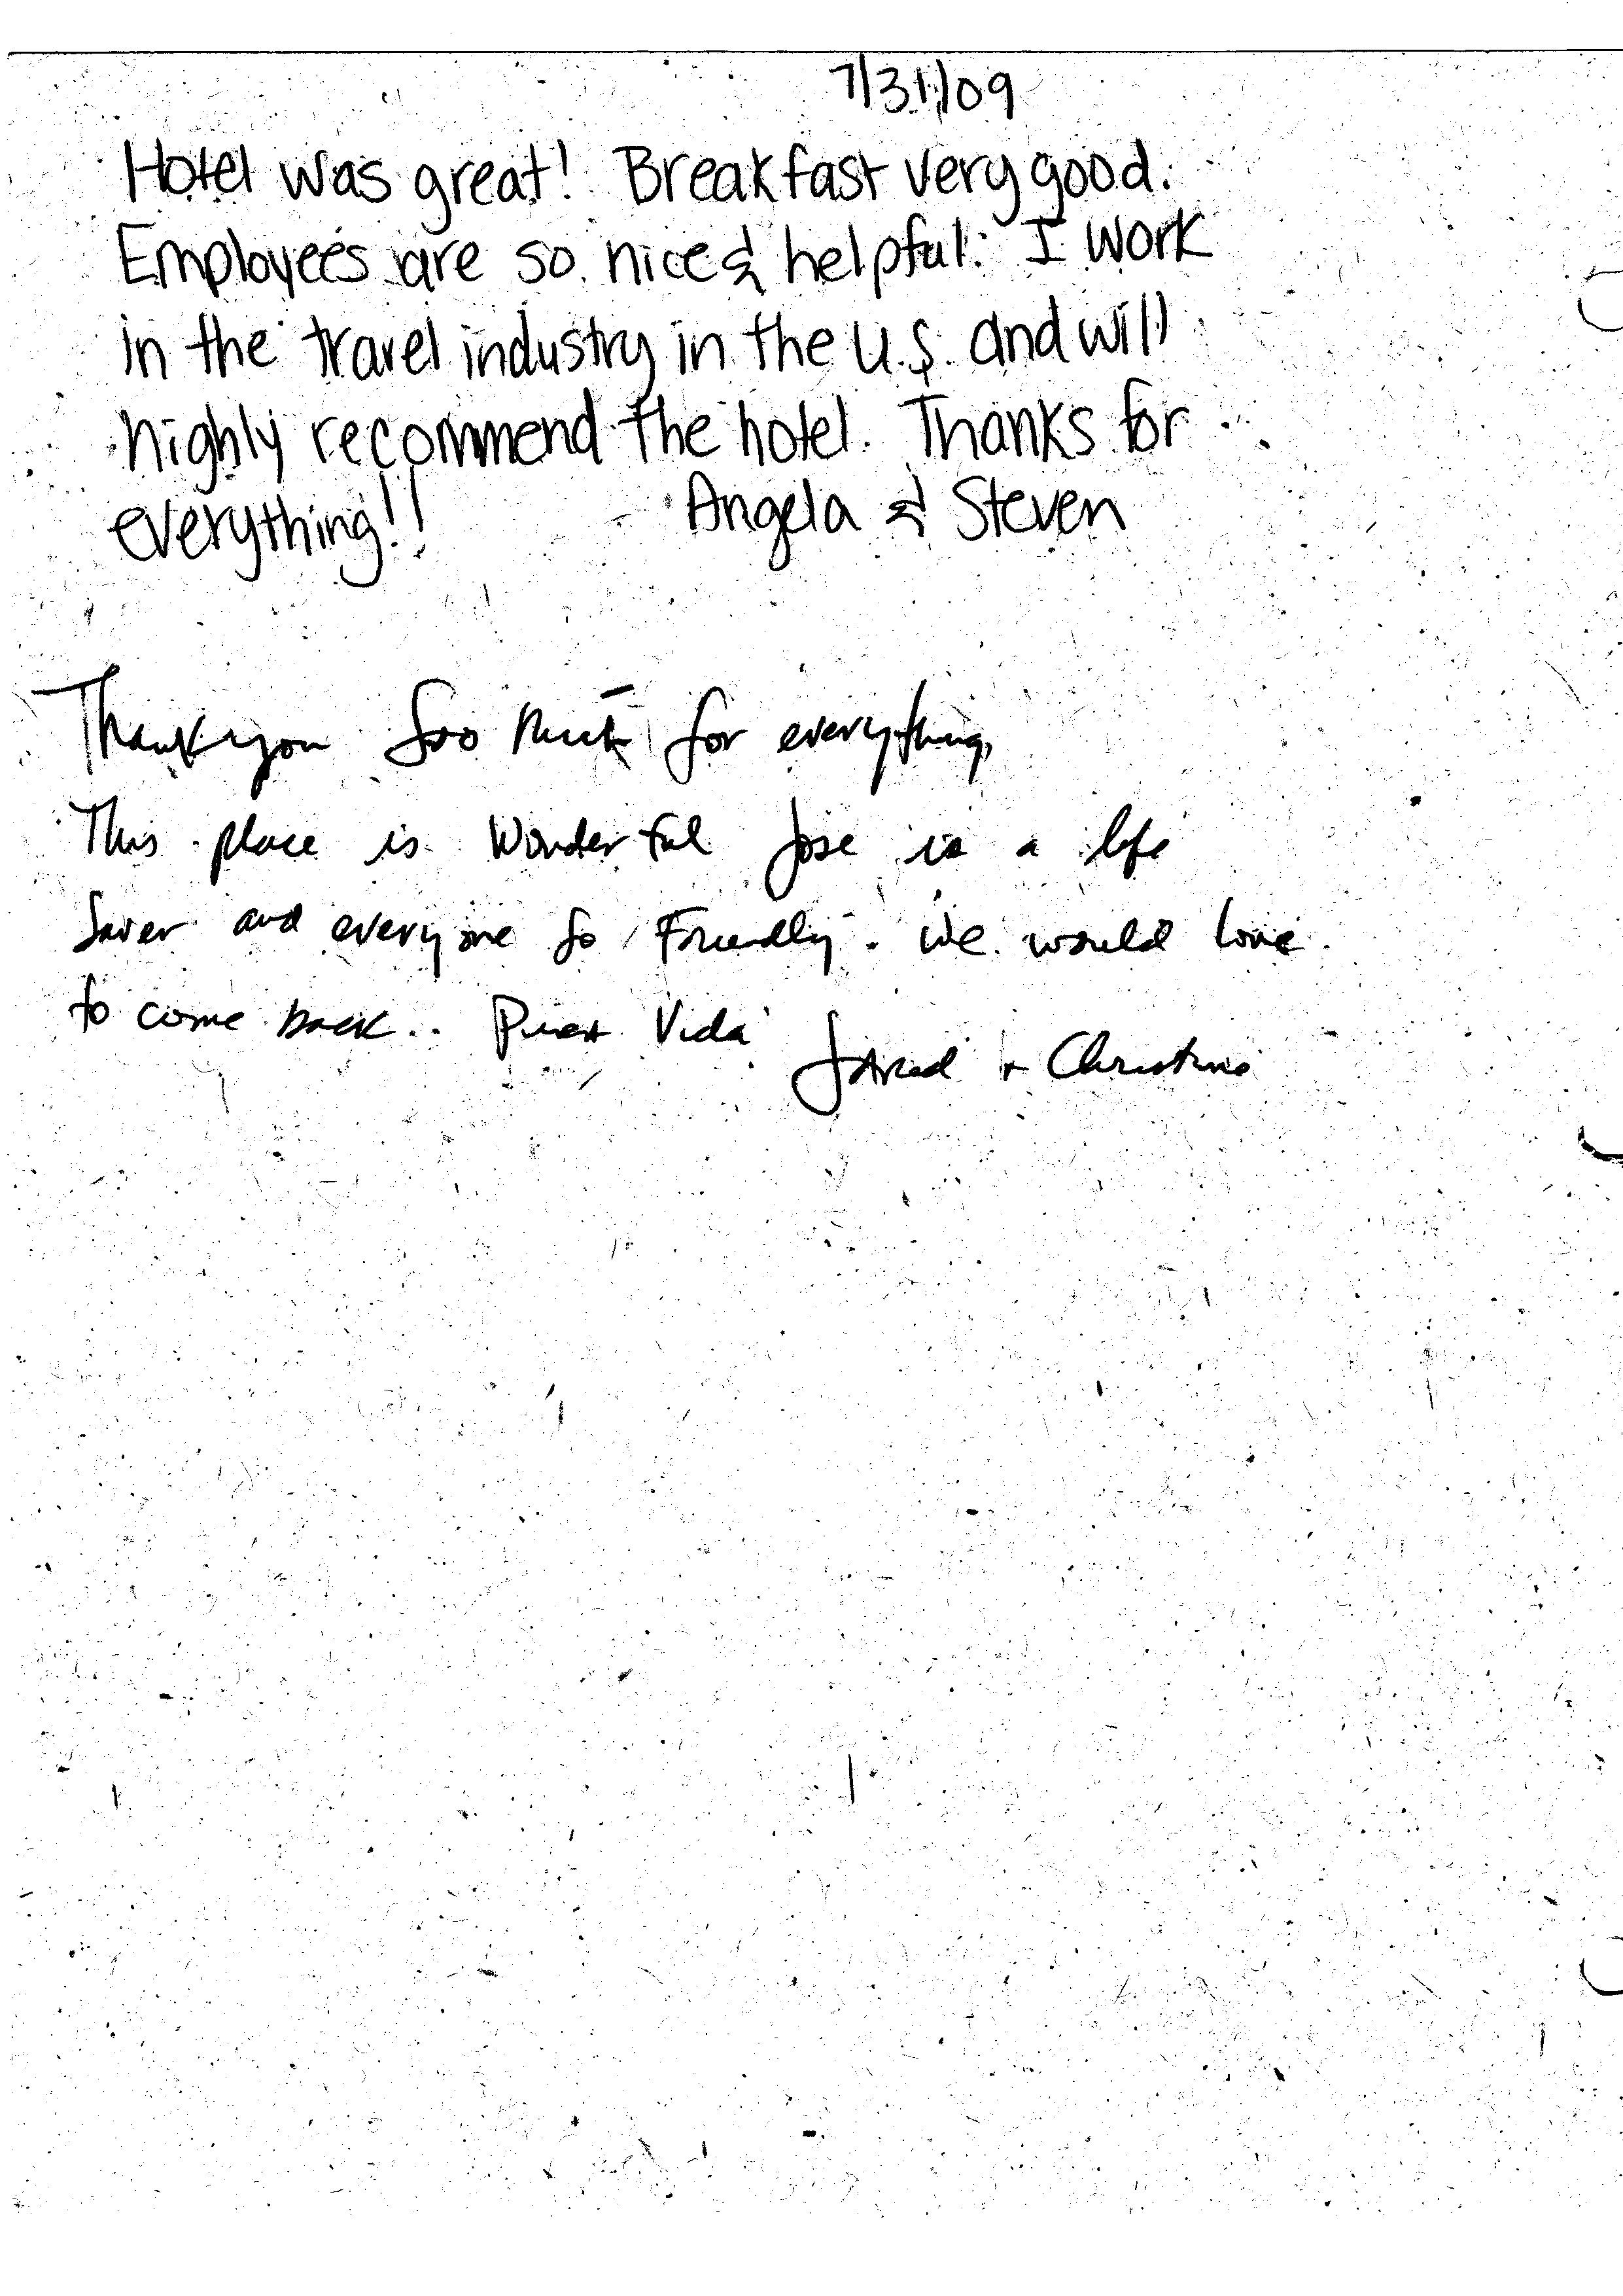 7/31/09
Hotel was great! Breakfast very good.
Employees are so nice & helpful. I work
in the travel industry in the U.S. and will
highly recommend the hotel. Thanks for
everything!!
Angela & Steven
Thank you soo much for everything,
This place is Wonderful Jose is a life
Saver and everyone so Friendly. We would love
to come back.. Pura Vida
Jared + Christina